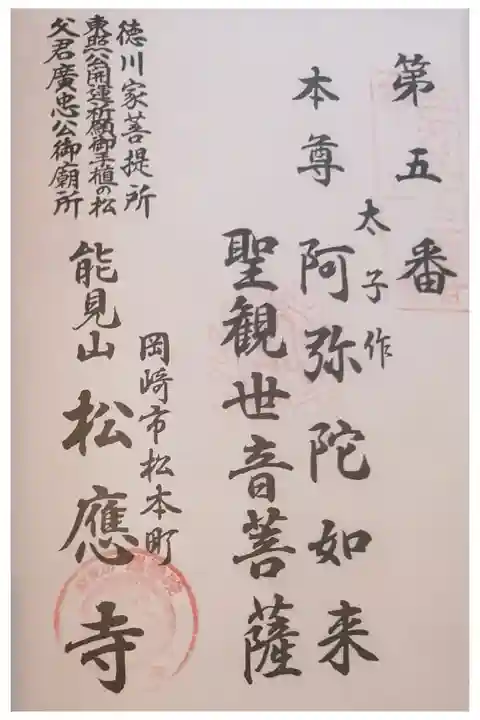 第五番
太子作
本尊 阿弥陀如来
聖観世音菩薩
徳川家菩提所
東照公開運祈願御手植の松
父君廣忠公御廟所
岡崎市松本町
能見山 松應寺